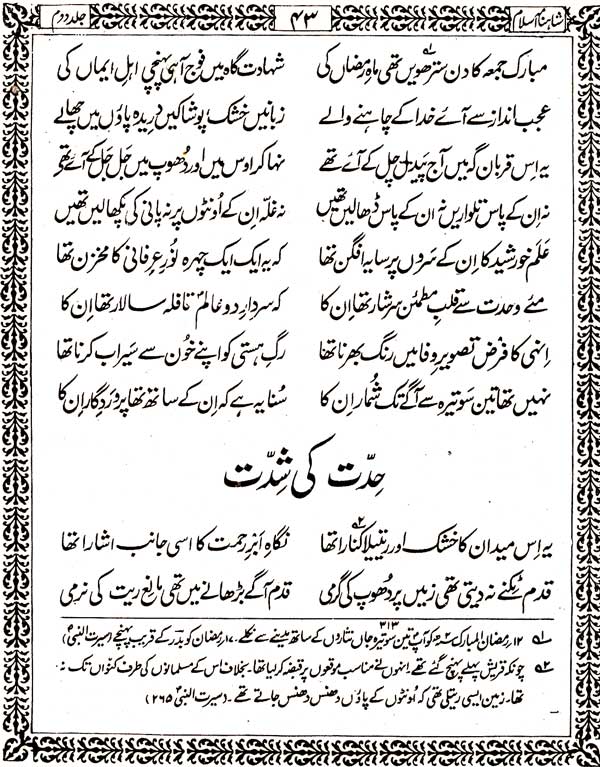 شاہنامہ اسلام ۴۳ جلد دوم
مبارک جمعہ کا دن سترھویں تھی ماہِ رمضاں کی شہادت گاہ میں فوج آ ہی پہنچی اہلِ ایماں کی
عجب انداز سے آئے خدا کے چاہنے والے زبانیں خشک پوشاکیں دریدہ پاؤں میں چھالے
یہ اس قربان گہ میں آج پیدل چل کے آئے تھے نہا کر اوس میں اور دھوپ میں جل جل کے آئے تھے
نہ ان کے پاس تلواریں نہ ان کے پاس ڈھالیں تھیں نہ غلہ ان کے اونٹوں پر نہ پانی کی پکھالیں تھیں
علَم خورشید کا ان کے سَروں پر سایہ افگن تھا کہ یہ ایک ایک چہرہ نورِ عرفانی کا مخزن تھا
مئے وحدت سے قلبِ مطمئن سرشار تھا ان کا کہ سردارِ دو عالمؐ قافلہ سالار تھا ان کا
انہی کا فرض تصویرِ وفا میں رنگ بھرنا تھا رگِ ہستی کو اپنے خون سے سیراب کرنا تھا
نہیں تھا تین سو تیرہ سے آگے تک شُمار ان کا سُنا یہ ہے کہ ان کے ساتھ تھا پروردگار ان کا
حِدّت کی شِدّت
یہ اس میدان کا خشک اور ریتیلا کنارا تھا ۲ نگاہِ ابرِ رحمت کا اسی جانب اشارا تھا
قدم ٹکنے نہ دیتی تھی زمیں پر دھوپ کی گرمی قدم آگے بڑھانے میں تھی مانع ریت کی نرمی
۱؎ ۱۲ رمضان المبارک ۲ھ کو آپؐ تین سو تیرہ ۳۱۳ جاں نثاروں کے ساتھ مدینے سے نکلے۔ ۱۷ رمضان کو بدر کے قریب پہنچے (سیرت النبیؐ)
۲؎ چونکہ قریش پہلے پہنچ گئے تھے۔ انہوں نے مناسب موقعوں پر قبضہ کر لیا تھا۔ بخلاف اس کے مسلمانوں کی طرف کنواں تک نہ
تھا۔ زمین ایسی ریتلی تھی کہ اونٹوں کے پاؤں دھنس دھنس جاتے تھے۔ (سیرت النبیؐ ۲۶۵)